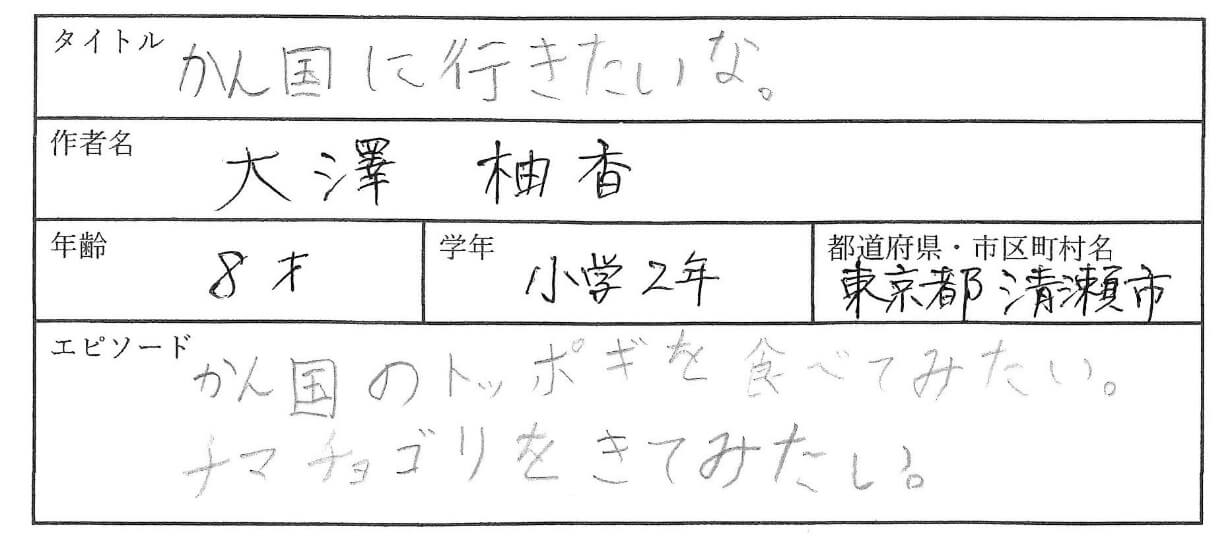 タイトル
かん国に行きたいな。
作者名
大澤 柚香
年齢
8才
学年
小学2年
都道府県・市区町村名
東京都清瀬市
エピソード
かん国のトッポギを食べてみたい。
チマチョゴリをきてみたい。